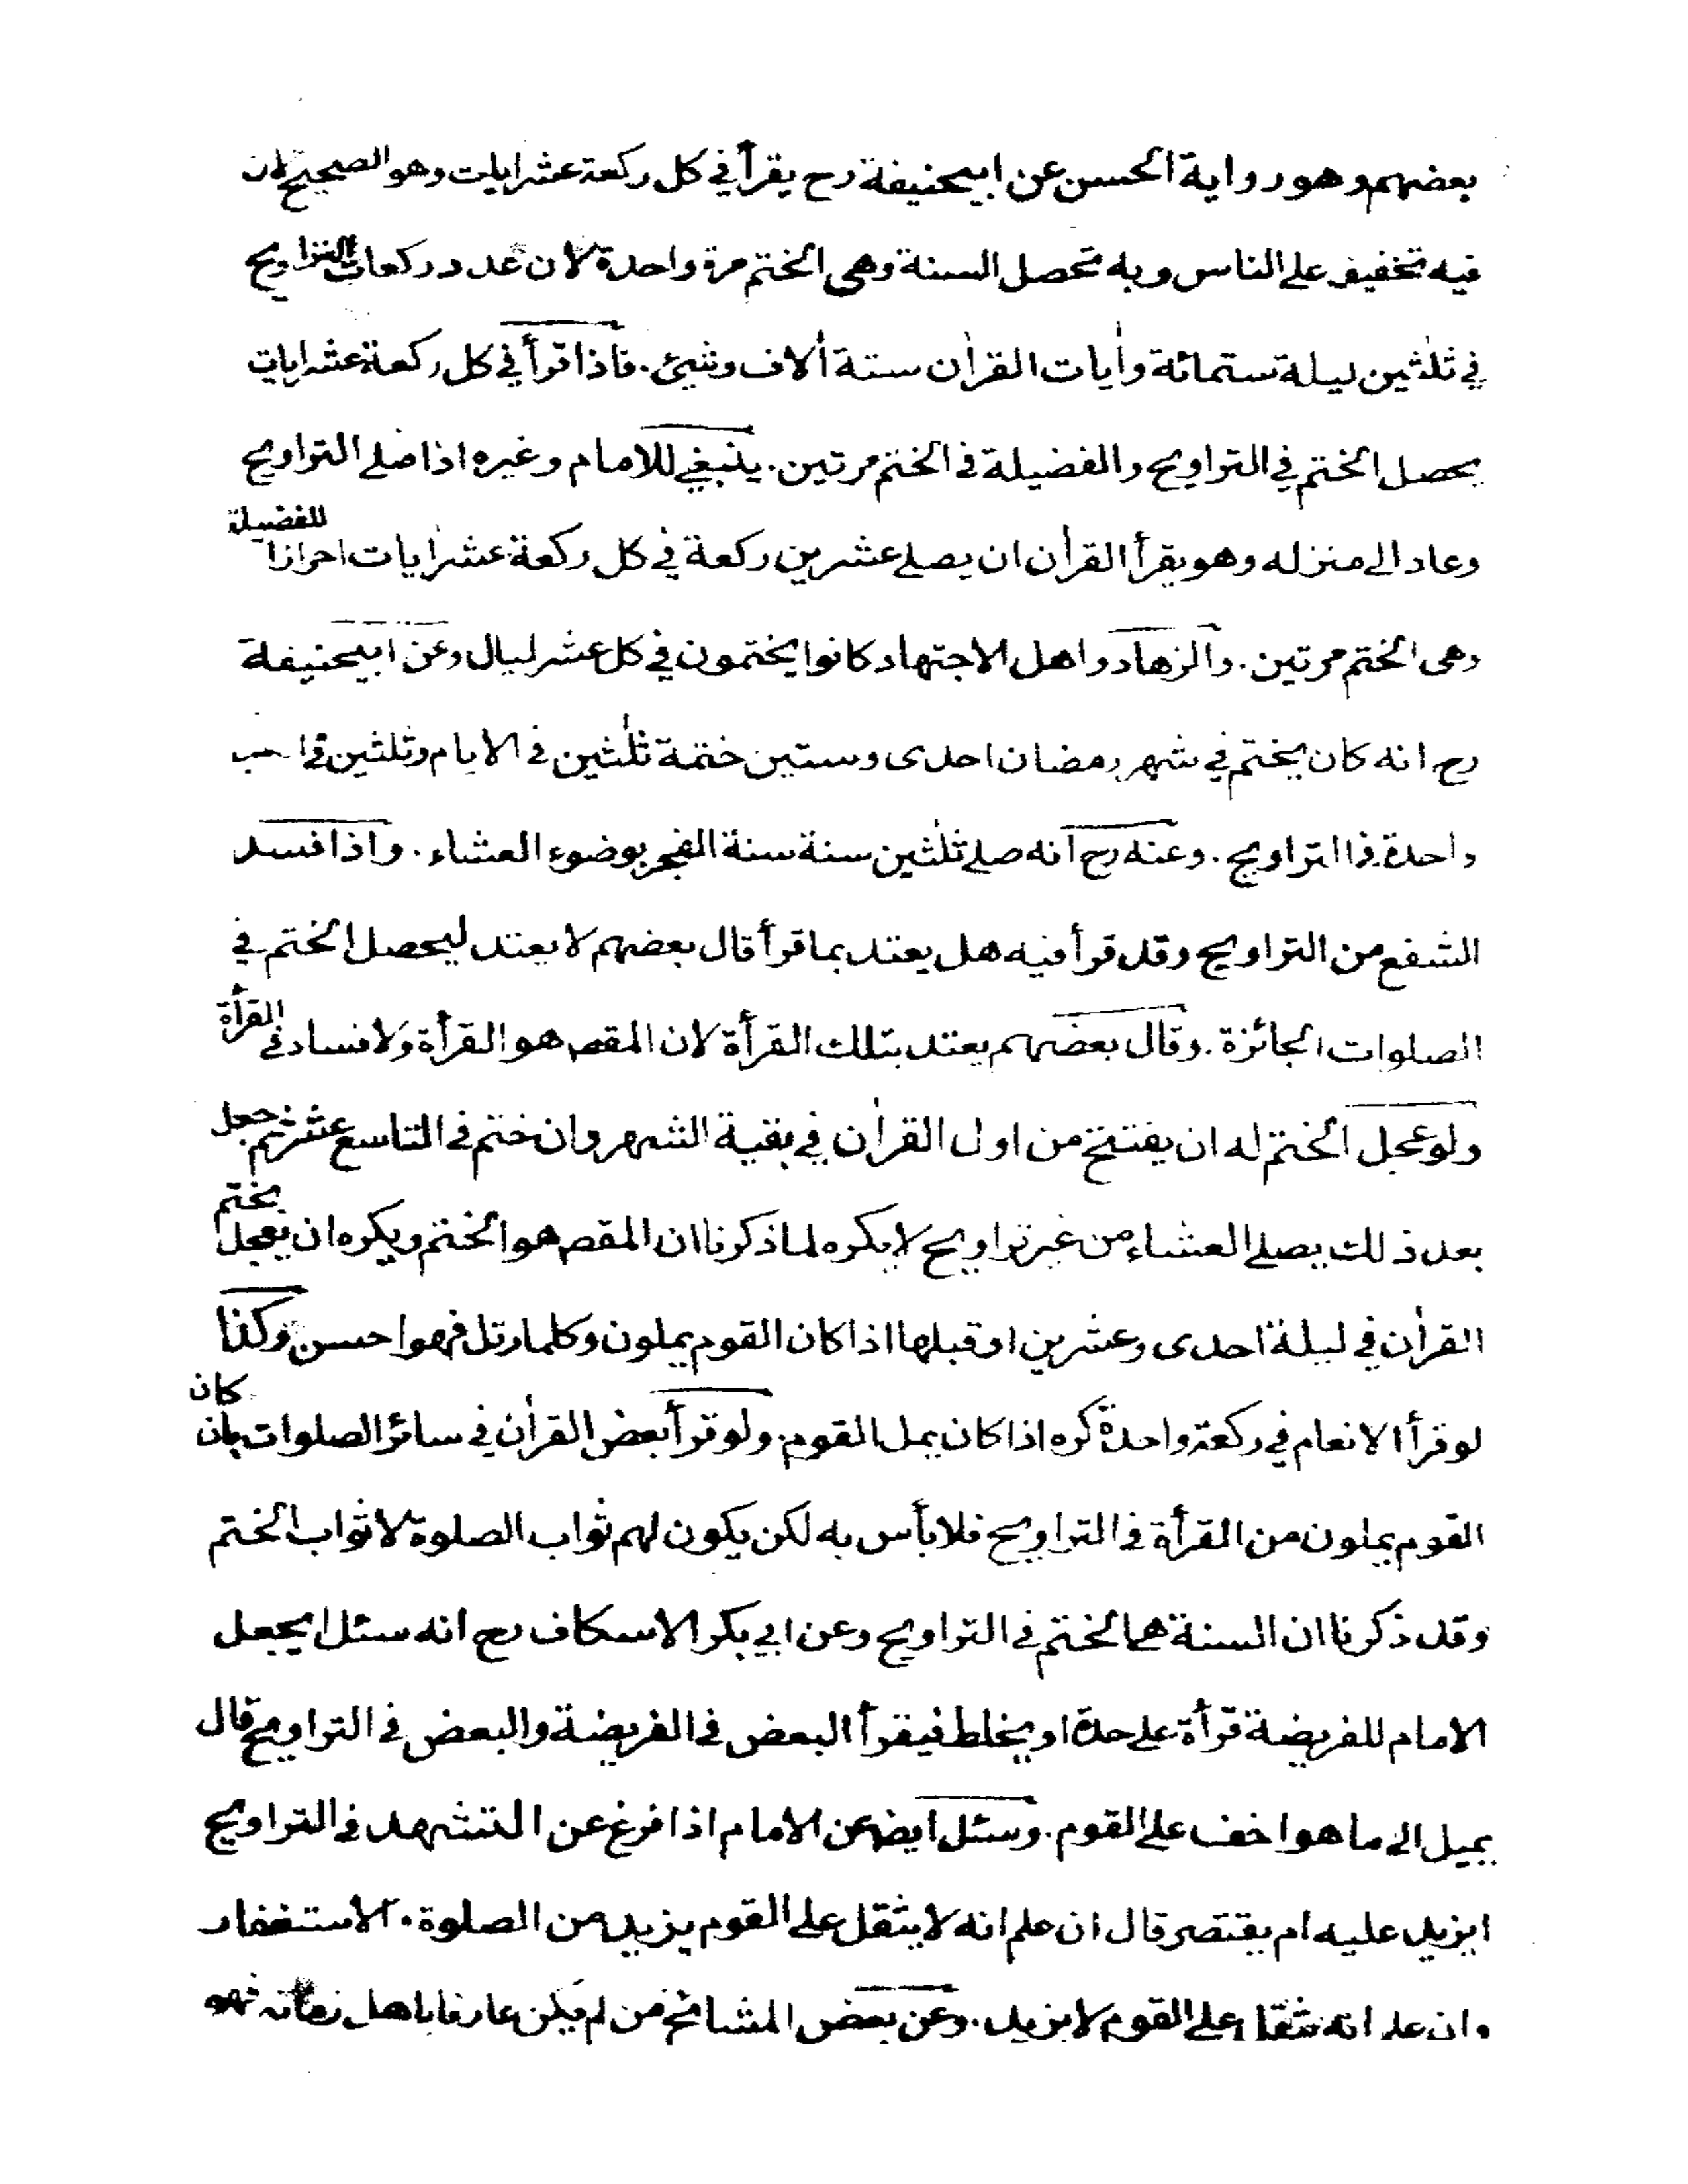 بعضهم وهو رواية الحسن عن ابيحنيفة رح يقرأ في كل ركعة عشر ايات وهو الصحيح لان
فيه تخفيف على الناس وبه تحصل السنة وهى الختم مرة واحدة لان عدد ركعات التراويح
في ثلٰثين ليلة ستمائة واٰيات القراٰن ستة اٰلاف وشئ . فاذا قرأ في كل ركعة عشر ايات
يحصل الختم في التراويح والفضيلة فى الختم مرتين . ينبغي للامام وغيره اذا صلى التراويح
وعاد الى منزله وهو يقرأ القراٰن ان يصلے عشرين ركعة في كل ركعة عشر اٰيات احرازا للفضيلة
وهى الختم مرتين . والزهاد واهل الاجتهاد كانوا يختمون في كل عشر ليال وعن ابيحنيفة
رح انه كان يختم في شهر رمضان احدى وستين ختمة ثلٰثين فى الايام وثلثين في
واحدة فى التراويح . وعنه رح انه صلے ثلٰثين سنة سنة الفجر بوضوء العشاء . واذا فسد
الشفع من التراويح وقد قرأ فيه هل يعتد بما قرأ قال بعضهم لا يعتد ليحصل الختم في
الصلوات الجائزة . وقال بعضهم يعتد بتلك القرأة لان المقصـ هو القرأة ولا فساد فى القرأة
ولو عجل الختم له ان يفتتح من اول القراٰن في بقية الشهر وان ختم فى التاسع عشر ثم جعل
بعد ذلك يصلے العشاء من غير تراويح لا يكره لما ذكرنا ان المقصـ هو الختم ويكره ان يعجل ختم
القراٰن في ليلة احدى وعشرين او قبلها اذا كان القوم يملون وكلما رتل فهو احسن وكذا
لو قرأ الانعام في ركعة واحدة كره اذا كان يمل القوم . ولو قرأ بعض القراٰن في سائر الصلوات بان كان
القوم يملون من القرأة فى التراويح فلا بأس به لكن يكون لهم ثواب الصلوة لا ثواب الختم
وقد ذكرنا ان السنة هى الختم فى التراويح وعن ابي بكر الاسكاف رح انه سئل ايجعل
الامام للفريضة قرأة على حدة او يخلط فيقرأ البعض فى الفريضة والبعض فى التراويح قال
يميل الى ما هو اخف على القوم . وسئل ايضا عن الامام اذا فرغ عن التشهد فى التراويح
ايزيد عليه ام يقتصر قال ان علم انه لا يثقل على القوم يزيد من الصلوة . الاستغفار
وان علم انه يثقل على القوم لا يزيد . وعن بعض المشائخ من لم يكن عارفا باهل زمانه فهو